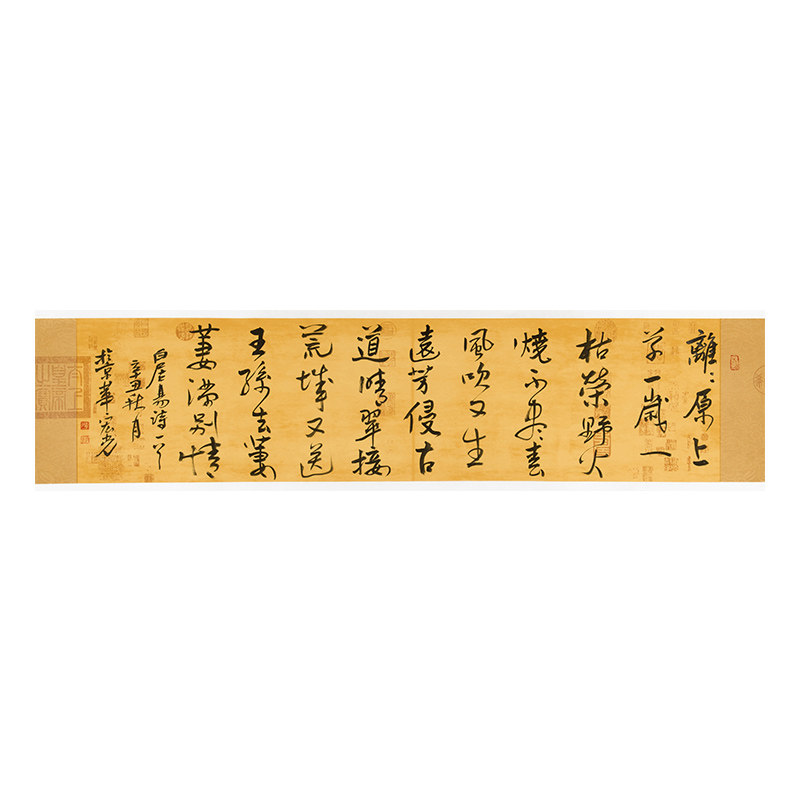 離〻原上
草一歲一
枯榮野火
燒不盡春
風吹又生
遠芳侵古
道晴翠接
荒城又送
王孫去萋
萋滿別情
白居易詩一首
辛丑秋月
於京華宏光